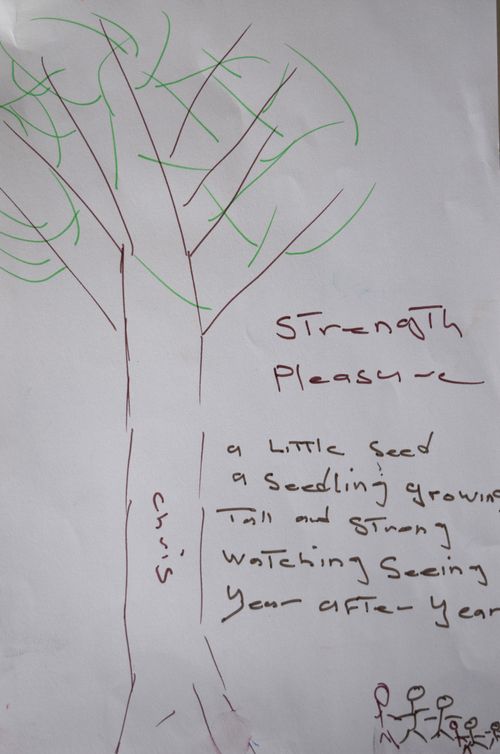 STrength
Pleasure
a LiTTLe seed
a seedling growing
Tall and strong
watching seeing
Year after year
chris